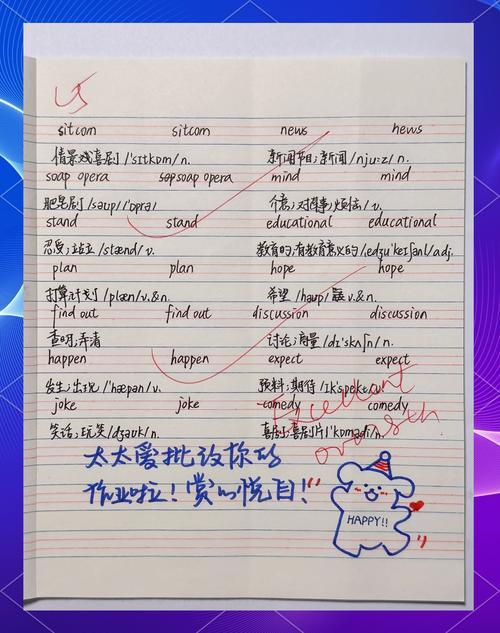 sitcom sitcom news news
情景戏喜剧 /'sɪtkɒm/n. 新闻节目;新闻 /njuːz/ n.
soap opera sopsoap opera mind mind
肥皂剧 /səup/ /'ɒprə/ 介意;对某事烦恼/v.
stand stand educational educational
忍受;站立 /stænd/ v. 教育的;有教育意义的 /,edʒu'keɪʃənl/adj.
plan plan hope hope
打算;计划 /plæn/v.&n. 希望 /həup/ v.&n.
find out find out discussion discussion
查明;弄清 讨论;商量 /dɪ'skʌʃn/ n.
happen happen expect expect
发生;出现 /'hæpən/v. 预料;期待 /ɪk'spekt/v.
joke joke comedy comedy
笑话;玩笑 /dʒəuk/ n. 喜剧;喜剧片 /'kɒmədi/n.
Excellent
太太爱批改你的
作业啦!赏心悦目!
HAPPY!!